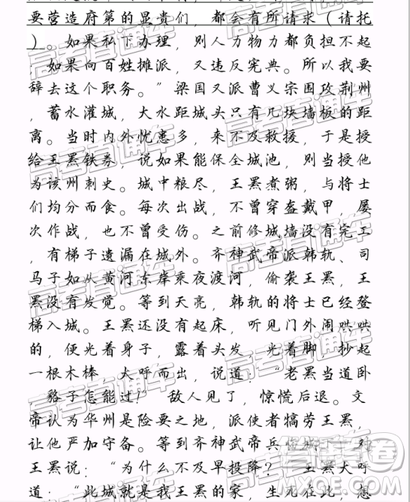 要营造府第的显贵们，都会有所请求（请托
）。如果私下办理，别人力物力都负担不起
，如果向百姓摊派，又违反宪典。所以我要
辞去这个职务。”梁国又派曹义宗围攻荆州
，蓄水灌城，大水距城头只有几块墙板的距
离。当时内外忧患多，来不及救援，于是授
给王罴铁券，说如果能保全城池，则当授他
为该州刺史。城中粮尽，王罴煮粥，与将士
们均分而食。每次出战，不曾穿盔戴甲，屡
次作战，也不曾受伤。之前修城墙没有完工
，有梯子遗漏在城外。齐神武帝派韩轨、司
马子如从黄河东岸乘夜渡河，偷袭王罴，王
罴没有发觉。等到天亮，韩轨的将士已经登
梯入城。王罴还没有起床，听见门外闹哄哄
的，便光着身子，露着头发，光着脚，抄起
一根木棒，大呼而出，说道：“老罴当道卧
，貉子怎能过！”敌人见了，惊慌后退。文
帝认为华州是险要之地，派使者犒劳王罴，
让他严加守备。等到齐神武帝兵临城下，对
王罴说：“为什么不及早投降？”王罴大呼
道：“此城就是我王罴的家，生死在此，想
高三直通车